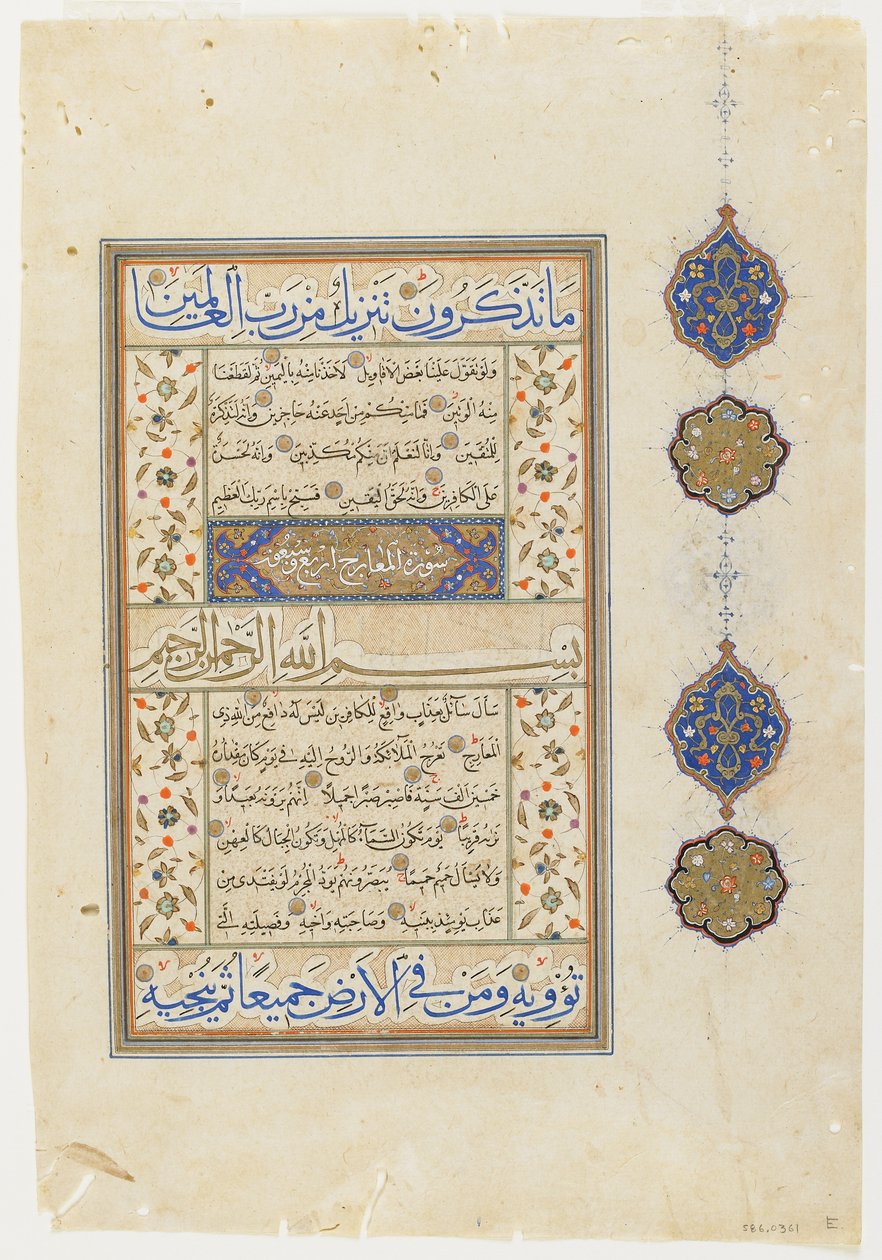 مَا تَذَّكَّرُونَ تَنْزِيلٌ مِنْ رَبِّ الْعَالَمِينَ
وَلَوْ تَقَوَّلَ عَلَيْنَا بَعْضَ الْاَقَاوِيلِ لَاَخَذْنَا مِنْهُ بِالْيَمِينِ ثُمَّ لَقَطَعْنَا
مِنْهُ الْوَتِينَ فَمَا مِنْكُمْ مِنْ اَحَدٍ عَنْهُ حَاجِزِينَ وَاِنَّهُ لَتَذْكِرَةٌ
لِلْمُتَّقِينَ وَاِنَّا لَنَعْلَمُ اَنَّ مِنْكُمْ مُكَذِّبِينَ وَاِنَّهُ لَحَسْرَةٌ
عَلَى الْكَافِرِينَ وَاِنَّهُ لَحَقُّ الْيَقِينِ فَسَبِّحْ بِاسْمِ رَبِّكَ الْعَظِيمِ
سُورَةُ الْمَعَارِجِ اَرْبَعٌ وَ
بِسْمِ اللّٰهِ الرَّحْمٰنِ الرَّحِيمِ
سَأَلَ سَائِلٌ بِعَذَابٍ وَاقِعٍ لِلْكَافِرِينَ لَيْسَ لَهُ دَافِعٌ مِنَ اللّٰهِ ذِى
الْمَعَارِجِ تَعْرُجُ الْمَلٰٓئِكَةُ وَالرُّوحُ اِلَيْهِ فِى يَوْمٍ كَانَ مِقْدَارُهُ
خَمْسِينَ اَلْفَ سَنَةٍ فَاصْبِرْ صَبْرًا جَمِيلًا اِنَّهُمْ يَرَوْنَهُ بَعِيدًا وَ
نَرٰيهُ قَرِيبًا يَوْمَ تَكُونُ السَّمَآءُ كَالْمُهْلِ وَتَكُونُ الْجِبَالُ كَالْعِهْنِ
وَلَا يَسْأَلُ حَمِيمٌ حَمِيمًا يُبَصَّرُونَهُمْ يَوَدُّ الْمُجْرِمُ لَوْ يَفْتَدِى مِنْ
عَذَابِ يَوْمِئِذٍ بِبَنِيهِ وَصَاحِبَتِهِ وَاَخِيهِ وَفَصِيلَتِهِ الَّتِى
تُؤْوِيهِ وَمَنْ فِى الْاَرْضِ جَمِيعًا ثُمَّ يُنْجِيهِ
586.0361 E